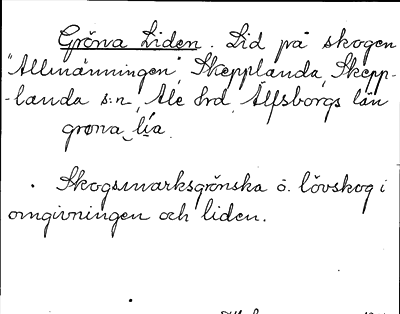 Gröna Liden. Lid på skogen
"Allmänningen", Skepplanda, Skepp-
-landa s:n, Ale Hrd, Älfsborgs län
grøna lía.
Skogsmarksgrönska o. lövskog i
omgivningen och liden.